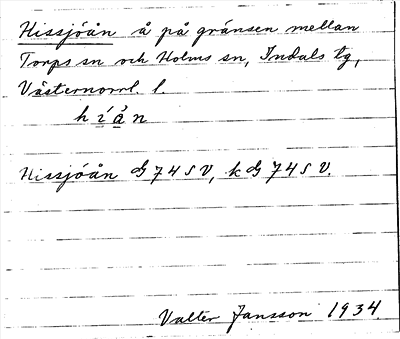 Hissjöån å på gränsen mellan
Torps sn och Holms sn, Indals tg,
Västernorrl. l.
Hissjöån G 74 S V, k G 74 S V.
Valter Jansson 1934.